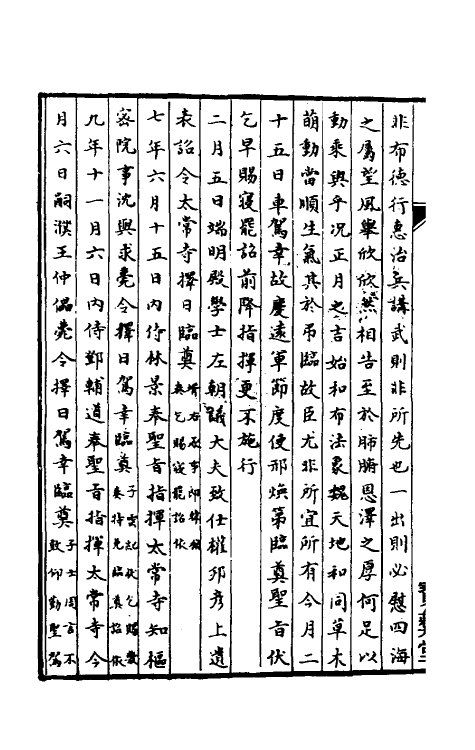 非布德行惠治兵講武則非所先也一出則必慰四海
之屬望風舉欣欣然相告至於肺腑恩澤之厚何足以
動乘輿乎况正月之吉始和布法象魏天地和同草木
萌動當順生氣其於弔臨故臣尤非所宜所有今月二
十五日車駕幸故慶遠軍節度使邢煥第臨奠聖旨伏
乞早賜寢罷詔前降指揮更不施行
二月五日端明殿學士左朝議大夫致仕權邦彥上遺
表詔令太常寺擇日臨奠
奏乞賜寢罷詔依
七年六月十五日內侍林景奉聖旨指揮太常寺知樞
密院事沈與求薨令擇日駕幸臨奠
子雲記狀乞賜
奏特免臨奠詔依
九年十一月六日內侍鄭輔道奉聖旨指揮太常寺今
月六日嗣濮王仲儡薨令擇日駕幸臨奠
子士周言不
敢仰勤聖駕